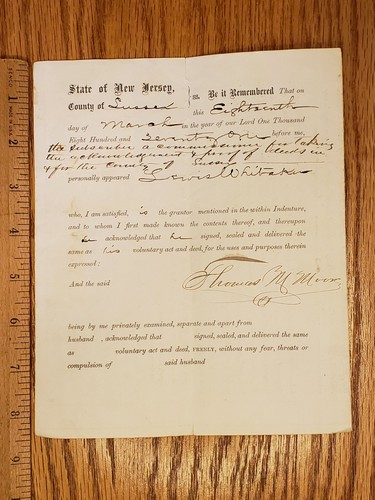 State of New Jersey, ss. Be it Remembered That on
County of Sussex this Eighteenth
day of March in the year of our Lord One Thousand
Eight Hundred and Seventy One before me,
the subscriber a commissioner for taking
the acknowledgment & proof of deeds in
& for the County of Sussex
personally appeared Lewis Whitaker
who, I am satisfied, is the grantor mentioned in the within Indenture,
and to whom I first made known the contents thereof, and thereupon
he acknowledged that he signed, sealed and delivered the
same as his voluntary act and deed, for the uses and purposes therein
expressed:
And the said
Thomas M Moore
being by me privately examined, separate and apart from
husband , acknowledged that signed, sealed, and delivered the same
as voluntary act and deed, FREELY, without any fear, threats or
compulsion of said husband
1
2
3
4
5
6
7
8
9